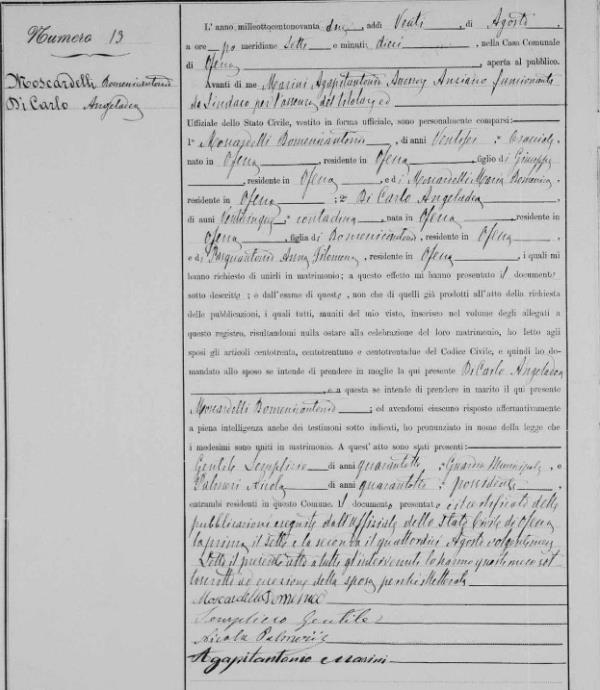 Numero 13
Moscardelli Domenicantonio
Di Carlo Angeladea
L' anno milleottocentonovanta due, addì Venti, di Agosto
a ore po meridiane sette e minuti dieci, nella Casa Comunale
di Ofena, aperta al pubblico.
Avanti di me Marini Agapitantonio Anziano funzionante
da Sindaco per del titolare, ed
Uffiziale dello Stato Civile, vestito in forma ufficiale, sono personalmente comparsi:
1º Moscardelli Domenicantonio, di anni
nato in Ofena, residente in Ofena, figlio di Giuseppe
, residente in Ofena, e di Moscardelli Maria Domenica
residente in Ofena; 2º Di Carlo Angeladea
di anni Venticinque, contadina, nata in Ofena, residente in
Ofena, figlia di Domenicantonio, residente in Ofena
e di Pasquantonio Anna Filomena, residente in Ofena, i quali mi
hanno richiesto di unirli in matrimonio; a questo effetto mi hanno presentato il documento
sotto descritto; e dall'esame di questo, non che di quelli già prodotti all'atto della richiesta
delle pubblicazioni, i quali tutti, muniti del mio visto, inserisco nel volume degli allegati a
questo registro, risultandomi nulla ostare alla celebrazione del loro matrimonio, ho letto agli
sposi gli articoli centotrenta, centotrentuno e centotrentadue del Codice Civile, e quindi ho do-
mandato allo sposo se intende di prendere in moglie la qui presente Di Carlo Angeladea
, e a questa se intende di prendere in marito il qui presente
Moscardelli Domenicantonio; ed avendomi ciascuno risposto affermativamente
a piena intelligenza anche dei testimoni sotto indicati, ho pronunziato in nome della legge che
i medesimi sono uniti in matrimonio. A quest' atto sono stati presenti:
Gentile Simplicio di anni quarantotto, Guardia Municipale, e
Palmeri Nicola di anni quarantotto, possidente,
entrambi residenti in questo Comune. Il documento presentato è il certificato delle
pubblicazioni eseguite dall'Uffiziale dello Stato Civile di Ofena
la prima il sette e la seconda il quattordici Agosto volgente mese
Letto il presente atto a tutti gli intervenuti lo hanno meco sot
toscritto ad eccezione della sposa perchè illetterata
Moscardelli Domenico
Simplicio Gentile
Nicola Palmerii
Agapitantonio Marini